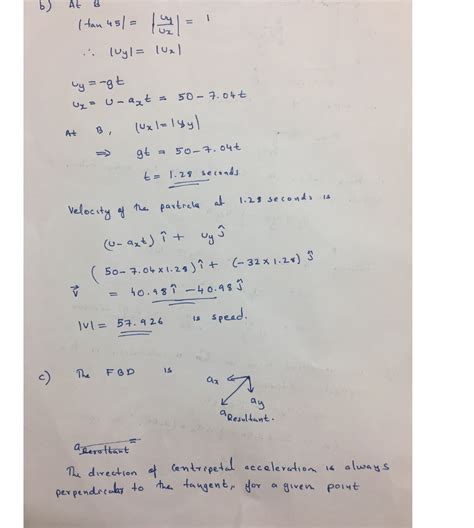 b) At B
|tan 45| = |uy/ux| = 1
∴ |uy| = |ux|
uy = -gt
ux = u - axt = 50 - 7.04t
At B, |ux| = |uy|
⇒ gt = 50 - 7.04t
t = 1.28 seconds
Velocity of the particle at 1.28 seconds is
(u - axt) î + uy ĵ
(50 - 7.04 x 1.28) î + (-32 x 1.28) ĵ
v⃗ = 40.98 î - 40.98 ĵ
|v| = 57.926 is speed.
c) The FBD is
ax
ay
aResultant.
aResultant
The direction of centripetal acceleration is always
perpendicular to the tangent, for a given point